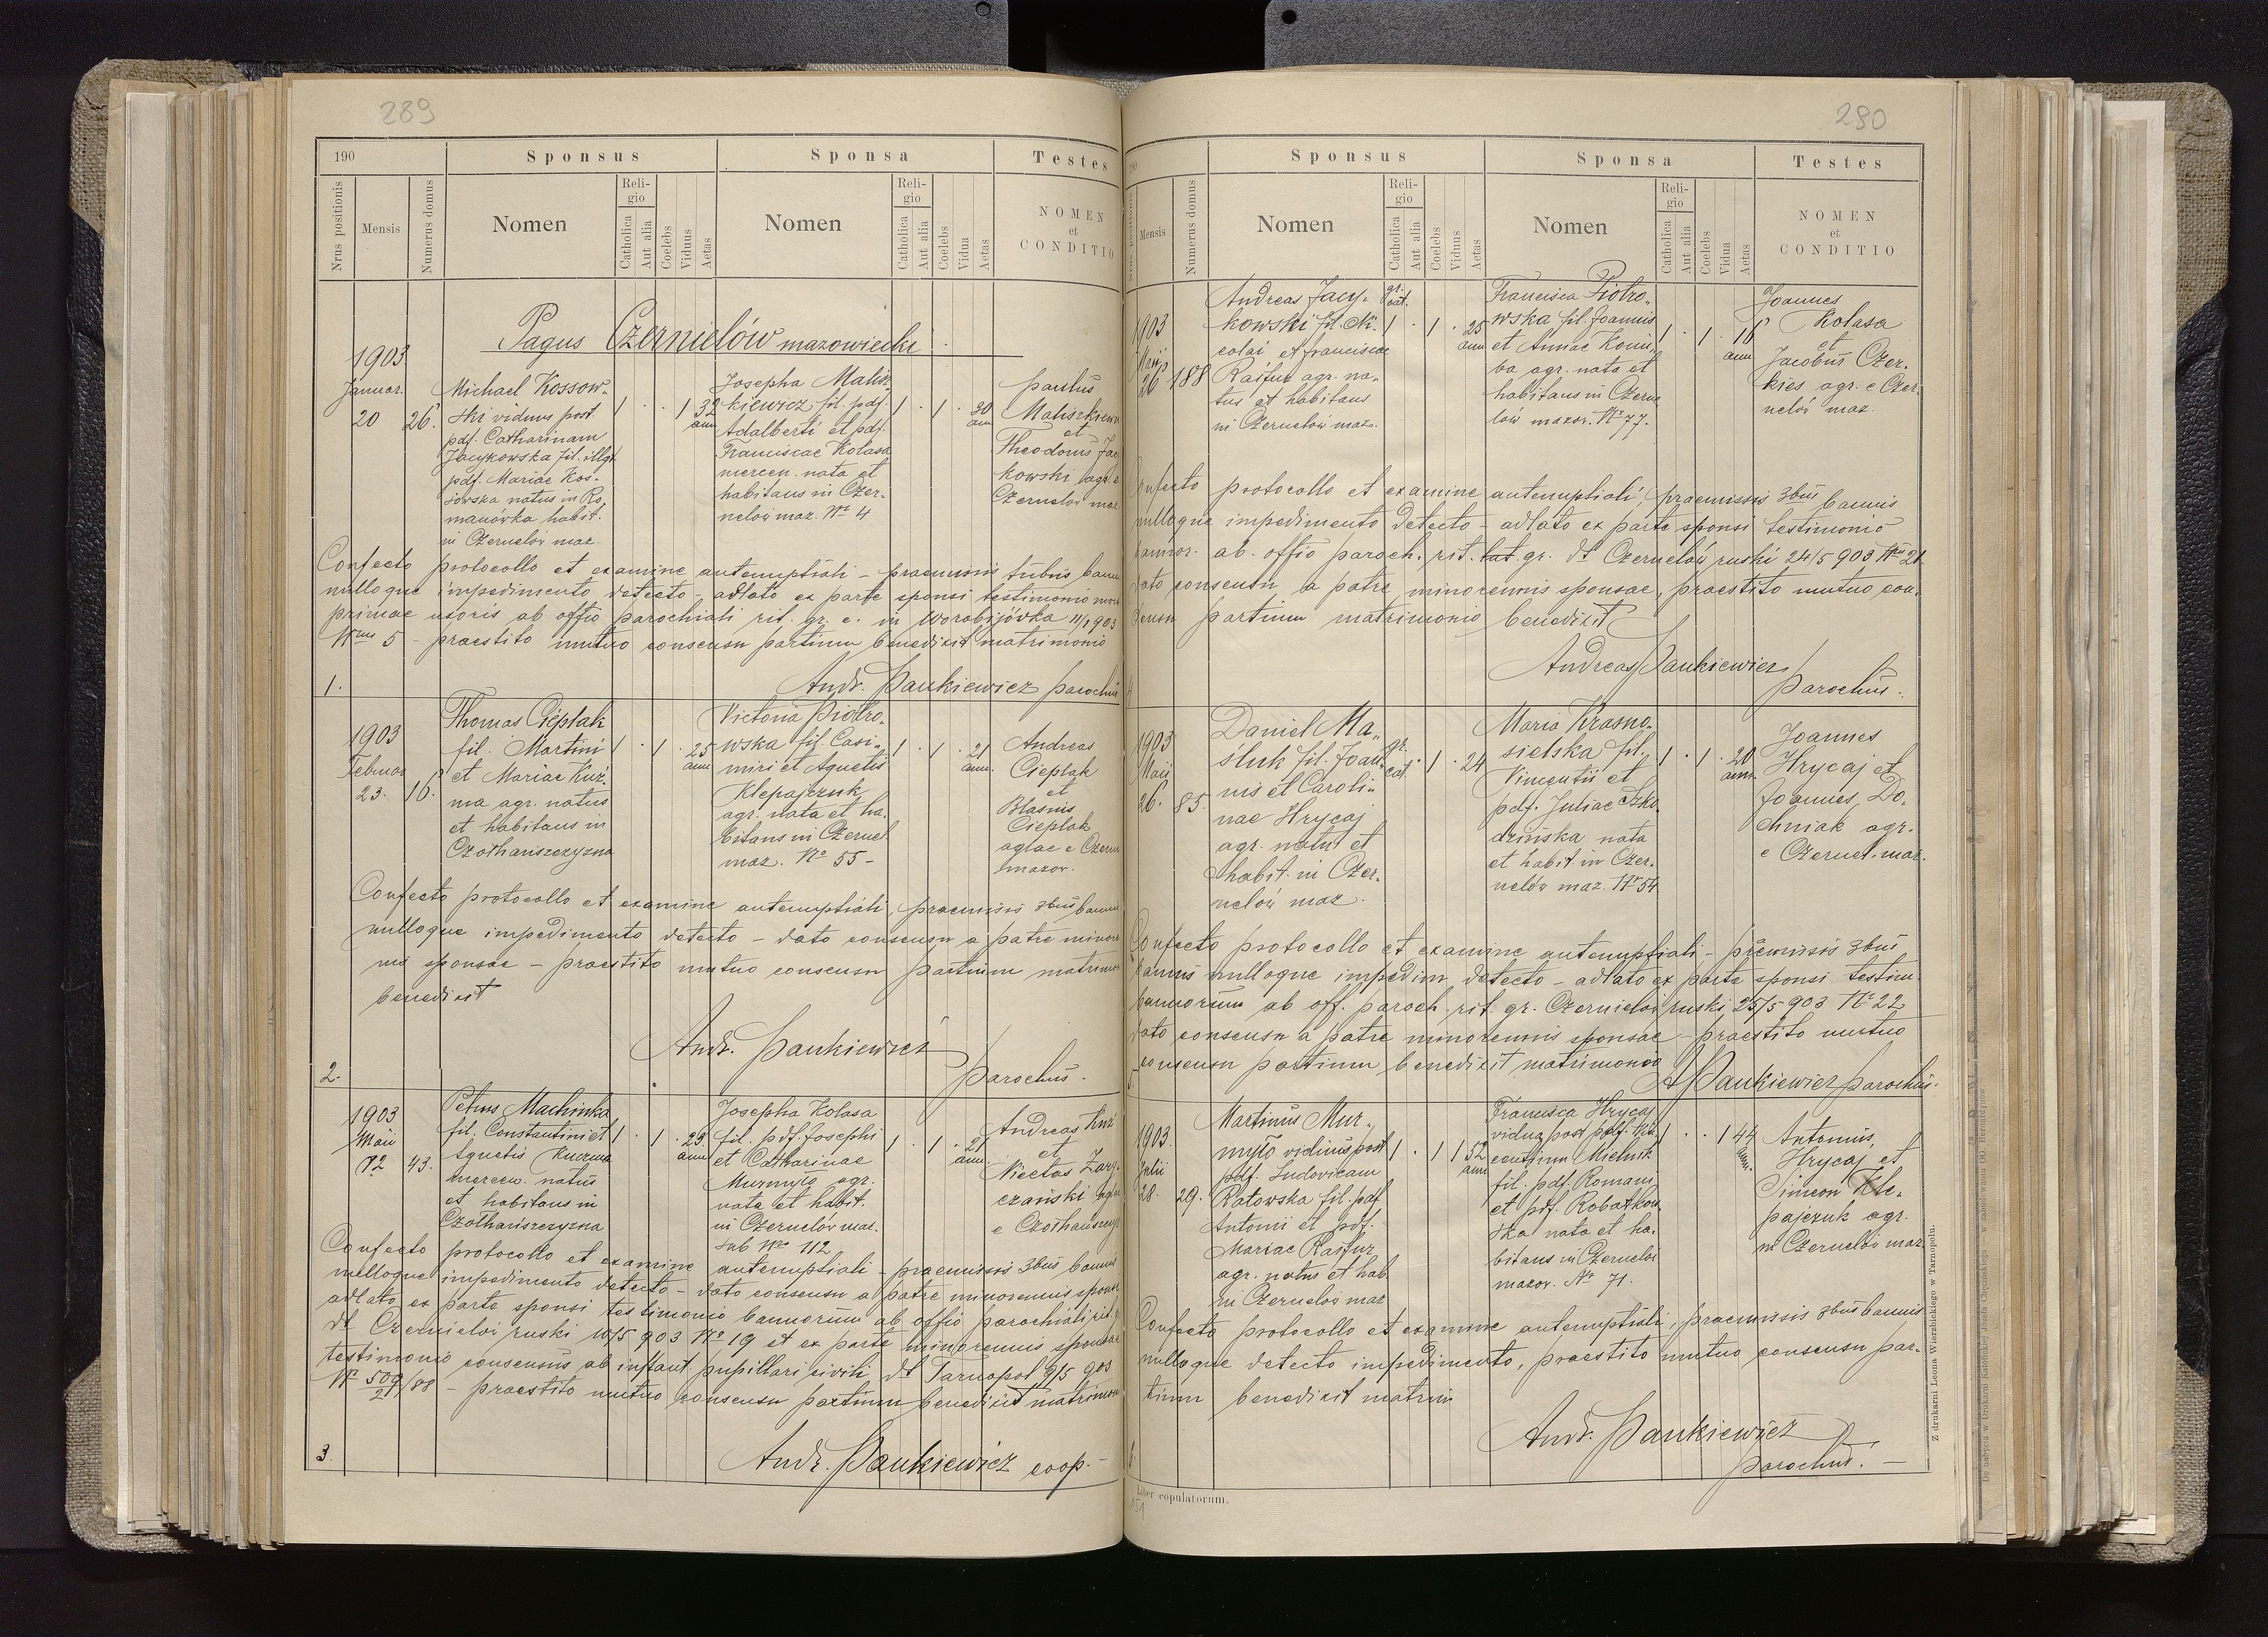 289
190
Sponsus
Sponsa
Testes
Nrus positionis
Mensis
Numerus domus
Nomen
Religio
Catholica
Aut alia
Coelebs
Viduus
Aetas
Nomen
Religio
Catholica
Aut alia
Coelebs
Vidua
Aetas
NOMEN
et
CONDITIO
Pagus Czernielów mazowiecki
1903
Januar.
20
26.
Michael Kossow-
ski viduus post
pdf. Catharinam
Jacykowska fil. illgt.
pdf. Mariae Kos-
sowska natus in Ro
manówka habit.
in Czernelov maz.
1 . . 1 32
ann
Josepha Malisz
kiewicz fil. pdf.
Adalberti et pdf.
Franciscae Kolasa
mercen. nata et
habitans in Czer-
nelow maz. Nr 4
1 . 1 . 30
ann
Paulus
Maliszkiewi
et
Theodorus Jac
kowski agr. e
Czernelov maz
Confecto protocollo et examine antenuptiali - praemissis tribus bann
nulloque impedimento detecto - adlato ex parte sponsi testimonio mor
primae uxoris ab offio parochiali rit. gr. c. in Worobijówka 11/1 903
Nrus 5 - praestito mutuo consensu partium benedixit matrimonio
1.
Andr. Pankiewicz parochus
1903
Februar
23.
16.
Thomas Cieplak
fil. Martini
et Mariae Kuź-
ma agr. natus
et habitans in
Czolhańszczyzna
1 . 1 . 25
ann
Victoria Piotro-
wska fil. Casi-
miri et Agnetis
Klepajczuk
agr. nata et ha-
bitans in Czernel
maz. No 55 -
1 . 1 . 21
ann.
Andreas
Cieplak
et
Blasius
Cieplak
aglae e Czern
mazov.
Confecto protocollo et examine antenuptiali, praemissis 3bus bannis
nulloque impedimento detecto - dato consensu a patre minore
nis sponsae - praestito mutuo consensu partium matrimon
benedixit
2.
Andr. Pankiewicz
Parochus.
1903
Maii
12
43.
Petrus Machinka
fil. Constantini et
Agnetis Kuzma
mercen. natus
et habitans in
Czolhańszczyzna
1 . 1 . 29
ann
Josepha Kolasa
fil. pdf. Josephi
et Catharinae
Murmyło agr.
nata et habit.
in Czernelów maz.
sub Nro 112
1 . 1 . 21
ann.
Andreas Kuź
et
Nicetas Zary-
czański
e Czolhańszczyz
Confecto protocollo et examine antenuptiali - praemissis 3bus bannis
nulloque impedimento detecto - dato consensu a patre minorennis sponsi
adlato ex parte sponsi testimonio bannorum ab offio parochiali rit. g
dt Czernielov ruski 10/5 903 Nro 19 et ex parte minorennis sponsae
testimonio consensus ab instant. pupillari civili dt Tarnopol 9/5 903
Nr 509/88 - praestito mutuo consensu partium benedixit matrimon
27
3.
Andr. Pankiewicz coop.-
290
190
Sponsus
Sponsa
Testes
Mensis
Numerus domus
Nomen
Religio
Catholica
Aut alia
Coelebs
Viduus
Aetas
Nomen
Religio
Catholica
Aut alia
Coelebs
Vidua
Aetas
NOMEN
et
CONDITIO
1903
Maii
26
188
Andreas Jacy-
kowski fil. Ni-
colai et Franciscae
Raifur agr. na-
tus et habitans
in Czernelow maz.
gr.
cat.
1 . 1 . 25
ann
Francisca Piotro-
wska fil. Joannis
et Annae Koni-
ba agr. nata et
habitans in Czerne
lów mazov. No 77.
1 . 1 . 18
ann
Joannes
Kolasa
et
Jacobus Czer-
kies agr. e Czer
nelów maz.
Confecto protocollo et examine antenuptiali, praemissis 3bus bannis
nulloque impedimento detecto - adlato ex parte sponsi testimonio
bannor. ab. offio paroch. rit. lat. gr. dt Czernelów ruski 24/5 903 Nro 21
dato consensu a patre minorennis sponsae, praestito mutuo con-
sensu partium matrimonio benedixit
Andreas Pankiewicz
Parochus.
1903
Maii
26.
85.
Daniel Ma-
śluk fil. Joan-
nis et Caroli-
nae Hrycaj
agr. natus et
habit. in Czer-
nelow maz.
gr.
cat.
. 1 . 24
Maria Krasno-
sielska fil.
Vincentii et
pdf. Juliae Szko-
dzińska nata
et habit. in Czer-
nelów maz. Nr 54
1 . 1 . 20
ann.
Joannes
Hrycaj et
Joannes Do-
chniak agr.
e Czernel. maz.
Confecto protocollo et examine antenuptiali - praemissis 3bus
bannis nulloque impedim detecto - adlato ex parte sponsi testim.
bannorum ab off. paroch. rit. gr. Czernielów ruski 25/5 903 No 22
dato consensu a patre minorennis sponsae - praestito mutuo
consensu partium benedixit matrimonio
A Pankiewicz parochus.
1903.
Julii
28.
29.
Martinus Mur-
myło viduus post
pdf. Ludovicam
Ratowska fil. pdf
Antoni et pdf.
Mariae Raifur
agr. natus et hab
in Czernelov maz
1 . 1 1 52
ann
Francisca Hrycaj
vidua post pdf. Vin
centium Mielnik
fil. pdf. Romani
et pdf. Robatkow
ska nata et ha-
bitans in Czernelów
mazov. No 71.
1 . . 1 44
ann.
Antonius
Hrycaj et
Simeon Kle-
pajczuk agr.
in Czernelów maz.
Confecto protocollo et examine antenuptiali, praemissis 3bus bannis
nulloque detecto impedimento, praestito mutuo consensu par-
tium benedixit matrim
Andr. Pankiewicz
Parochus. -
Liber copulatorum.
151
Z drukarni Leona Wierzbickiego w Tarnopolu.